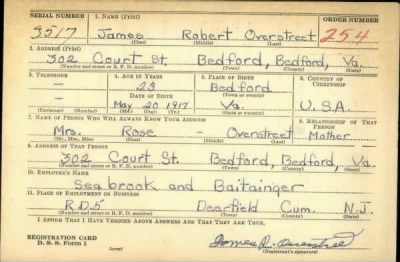 SERIAL NUMBER 1. NAME (Print) ORDER NUMBER
3517 James Robert Overstreet 254
(First) (Middle) (Last)
2. ADDRESS (Print)
302 Court St. Bedford, Bedford, Va.
(Number and street or R. F. D. number) (Town) (County) (State)
3. TELEPHONE 4. AGE IN YEARS 5. PLACE OF BIRTH 6. COUNTRY OF CITIZENSHIP
— 23 Bedford
(Town or county)
DATE OF BIRTH
— May 20 1917 Va. U.S.A.
(Exchange) (Number) (Mo.) (Day) (Yr.) (State or country)
7. NAME OF PERSON WHO WILL ALWAYS KNOW YOUR ADDRESS 8. RELATIONSHIP OF THAT PERSON
Mrs. Rose — Overstreet Mother
(Mr., Mrs., Miss) (First) (Middle) (Last)
9. ADDRESS OF THAT PERSON
302 Court St. Bedford, Bedford, Va.
(Number and street or R. F. D. number) (Town) (County) (State)
10. EMPLOYER'S NAME
Seabrook and Baitainger
11. PLACE OF EMPLOYMENT OR BUSINESS
R.D.5 Deerfield Cum. N.J.
(Number and street or R. F. D. number) (Town) (County) (State)
I AFFIRM THAT I HAVE VERIFIED ABOVE ANSWERS AND THAT THEY ARE TRUE.
REGISTRATION CARD
D. S. S. Form 1 (over) James R. Overstreet
(Registrant's signature)